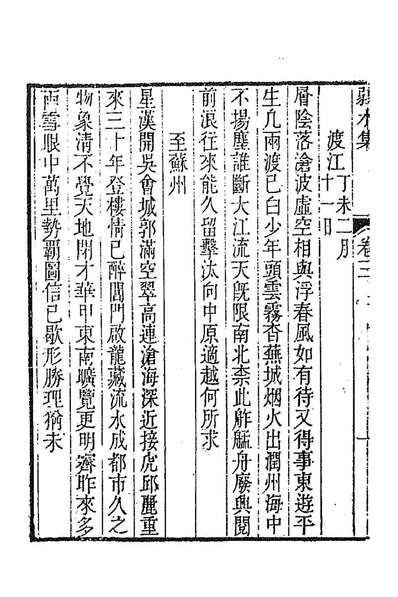 弱水集 卷三
渡江 丁未二月
十一日
層陰落滄波虛空相與浮春風如有待又得事東遊平
生几兩渡已白少年頭雲霧杳蕪城烟火出潤州海中
不揚塵誰斷大江流天旣限南北柰此舴艋舟廢興閱
前浪往來能久留擊汰向中原適越何所求
至蘇州
星漢開吳會城郭滿空翠高連滄海深近接虎邱麗重
來三十年登樓情已醉閶門啟龍藏流水成都市久之
物象清不覺天地閉才華甲東南曠覽更明霽昨來多
雨雪眼中萬里勢霸圖信已歇形勝理猶未